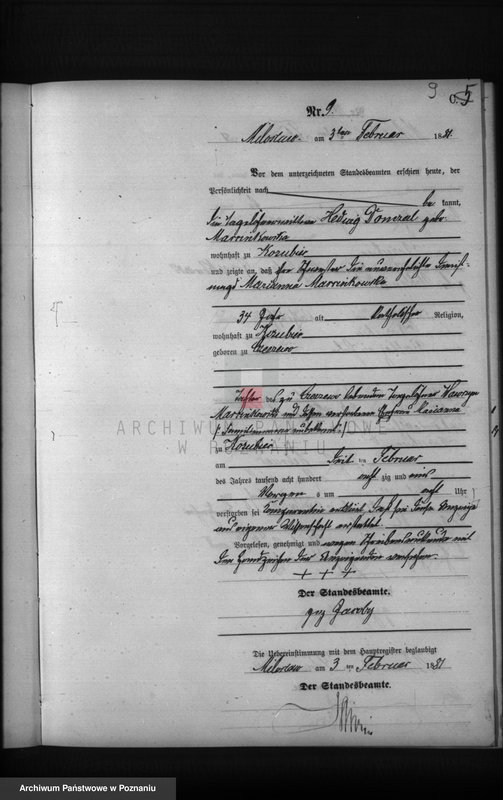 9
C. 5
Nr. 9.
Miloslaw am 3ten Februar 1881.
Vor dem unterzeichneten Standesbeamten erschien heute, der
Persönlichkeit nach
be kannt,
die Tagelöhnerwittwe Hedwig Donczal geb.
Marcinkowska
wohnhaft zu Kozubiec
und zeigte an, daß ihre Schwester die unverehelichte Dienst-
magd Marianna Marcinkowska
34 Jahr alt, katholischer Religion,
wohnhaft zu Kozubiec
geboren zu Czeszewo
Tochter des zu Czeszewo lebenden Tagelöhner Wawrzyn
Marcinkowski und dessen verstorbenen Ehefrau Marianna
(: Familienname unbekannt :)
zu Kozubiec
am drei ten Februar
des Jahres tausend acht hundert acht zig und eins
Morgens um acht Uhr
verstorben sei. Componentin erklärt, daß sie diese Anzeige
aus eigener Wissenschaft erstattet.
Vorgelesen, genehmigt und wegen Schreibensunkunde mit
den Handzeichen der Anzeigenden versehen.
+ + +
Der Standesbeamte.
gez Jacoby
Die Uebereinstimmung mit dem Hauptregister beglaubigt
Miloslaw am 3 ten Februar 1881
Der Standesbeamte.
ARCHIWUM PAŃSTWOWE
W POZNANIU
Archiwum Państwowe w Poznaniu